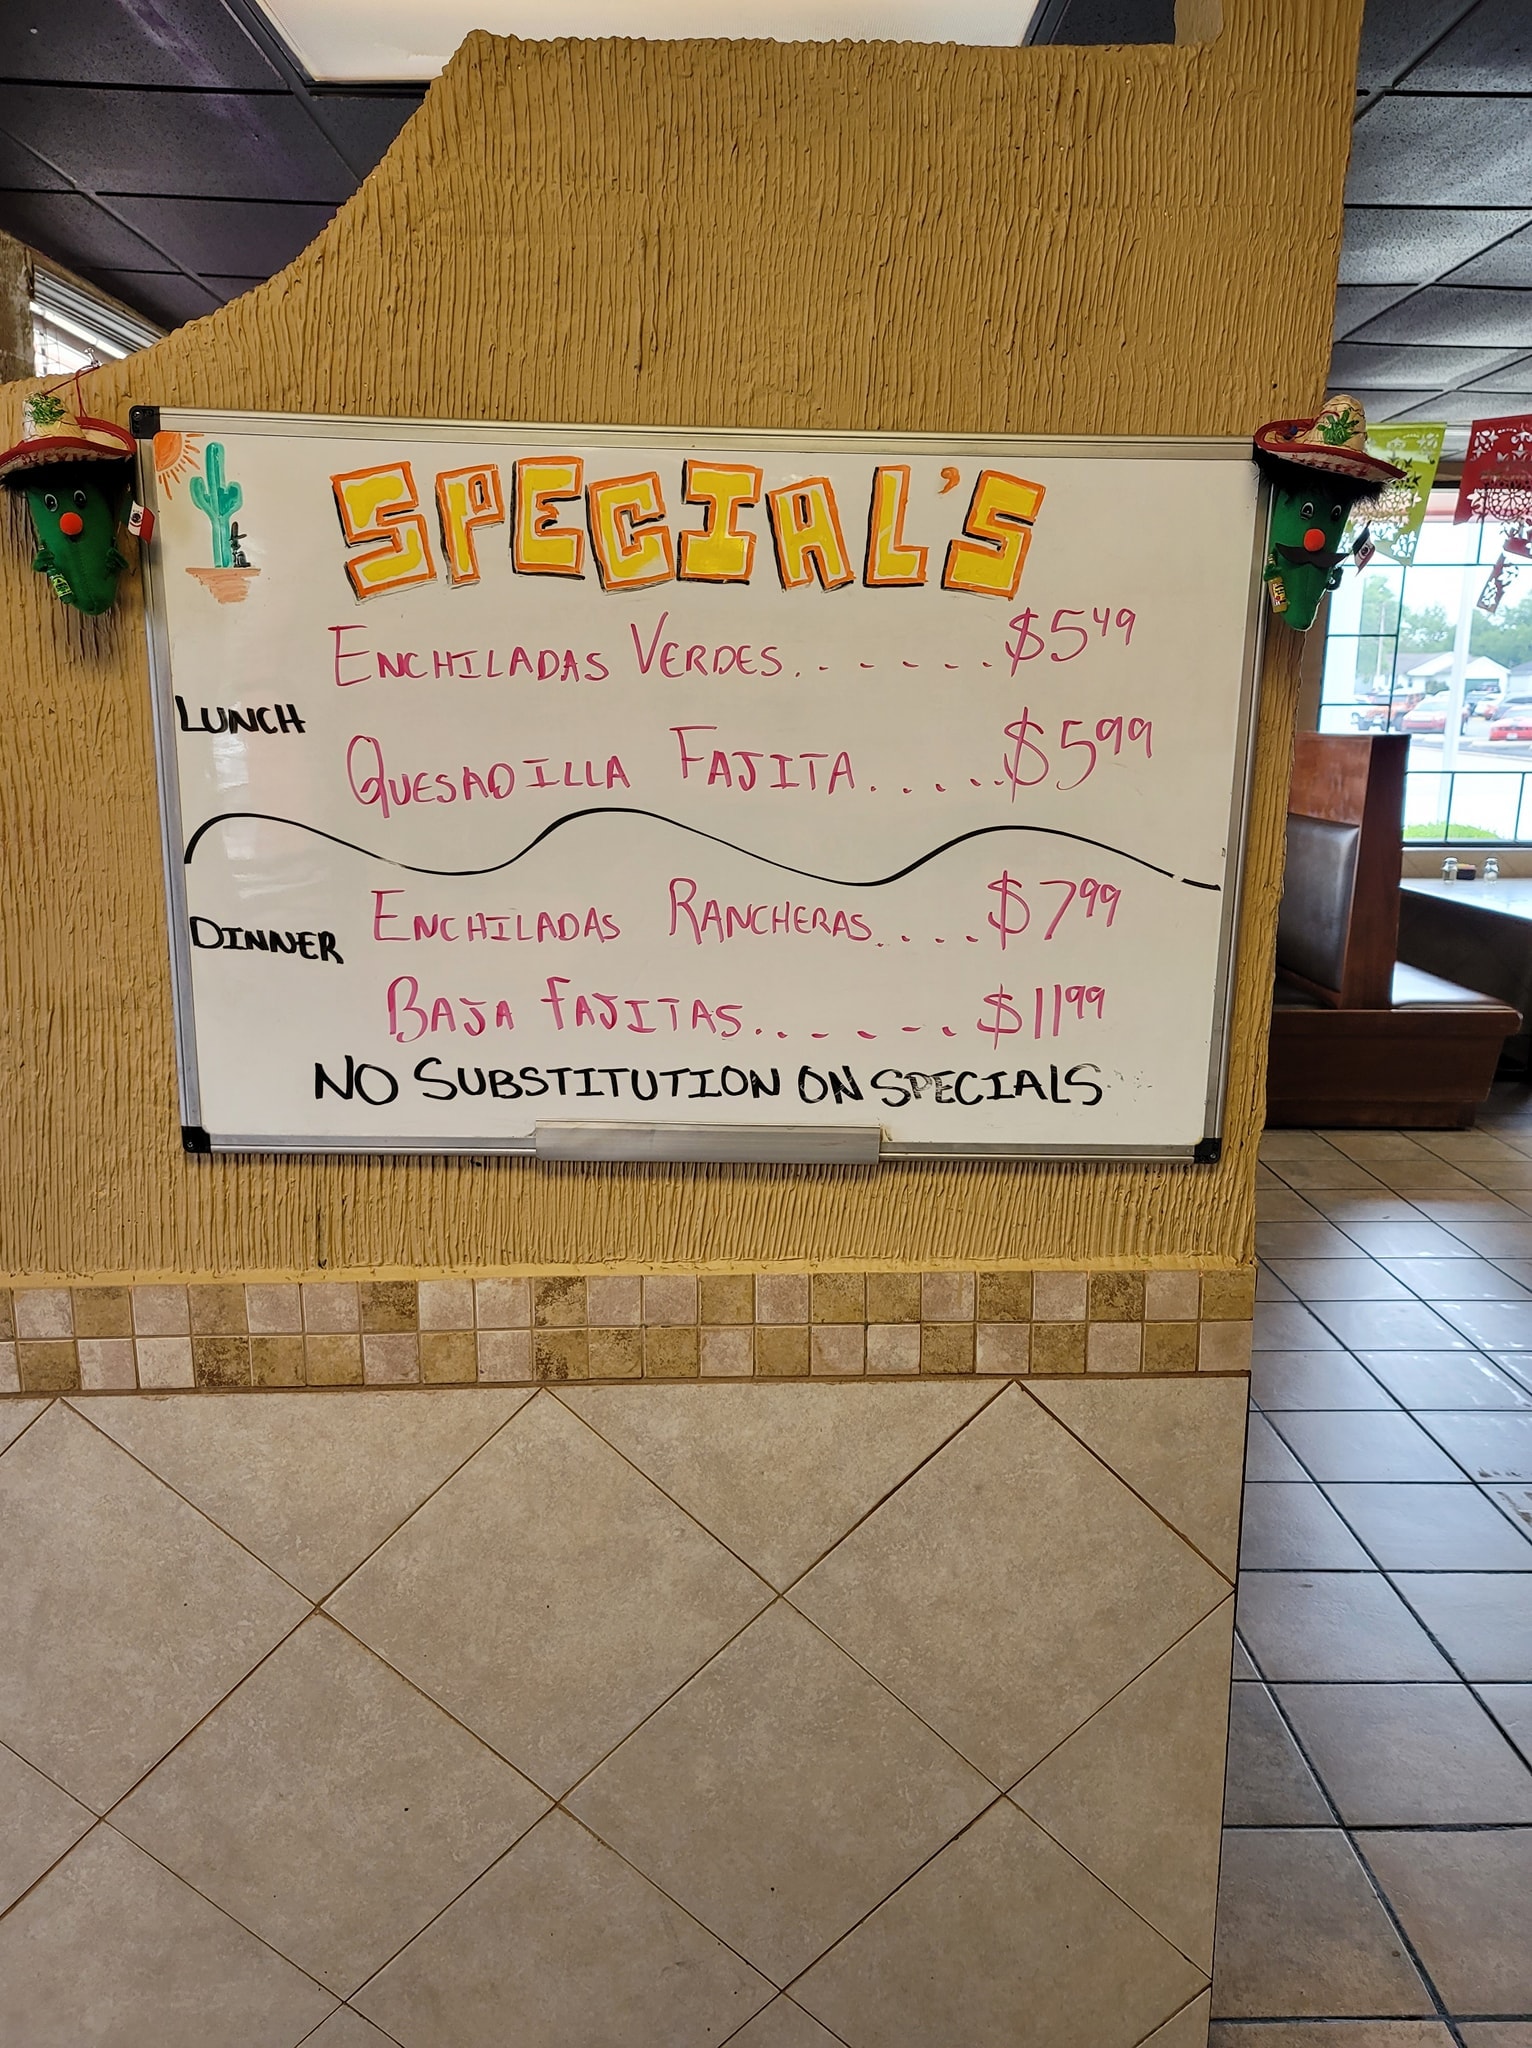 SPECIAL'S
ENCHILADAS VERDES. . . . . . $5.49
LUNCH
QUESADILLA FAJITA. . . . . $5.99
DINNER
ENCHILADAS RANCHERAS. . . . $7.99
BAJA FAJITAS. . . . . . $11.99
NO SUBSTITUTION ON SPECIALS